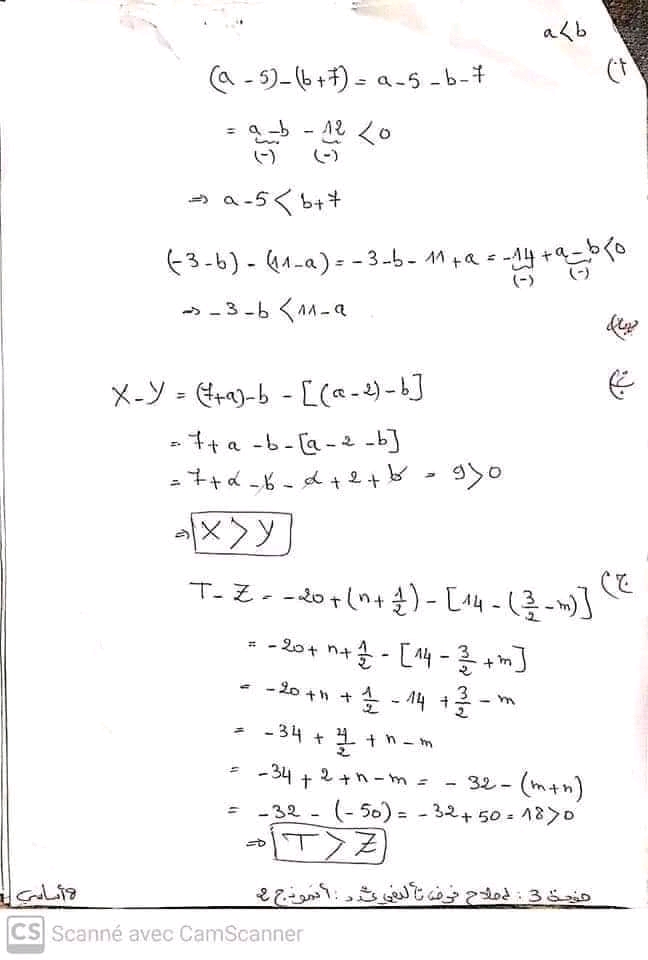 a<b
أ)
(a - 5)-(b+7) = a-5 -b-7
= a-b - 12 <0
(-) (-)
⇒ a-5 < b+7
(-3-b) - (11-a) = -3-b- 11+a = -14 + a-b<0
(-) (-)
⇒ -3-b < 11-a
X-Y = (7+a)-b - [(a-2)-b]
= 7+a -b-[a-2-b]
= 7+a-b-a+2+b = 9>0
⇒ X>Y
ج)
T-Z = -20+(n+1/2)-[14-(3/2-m)]
= -20+n+1/2-[14-3/2+m]
= -20+n+1/2-14+3/2-m
= -34+4/2+n-m
= -34+2+n-m = -32-(m+n)
= -32-(-50) = -32+50 = 18>0
⇒ T>Z
صفحة 3: إصلاح فرض تأليفي عدد: أنموذج 2
8 أساسي
CS Scanné avec CamScanner